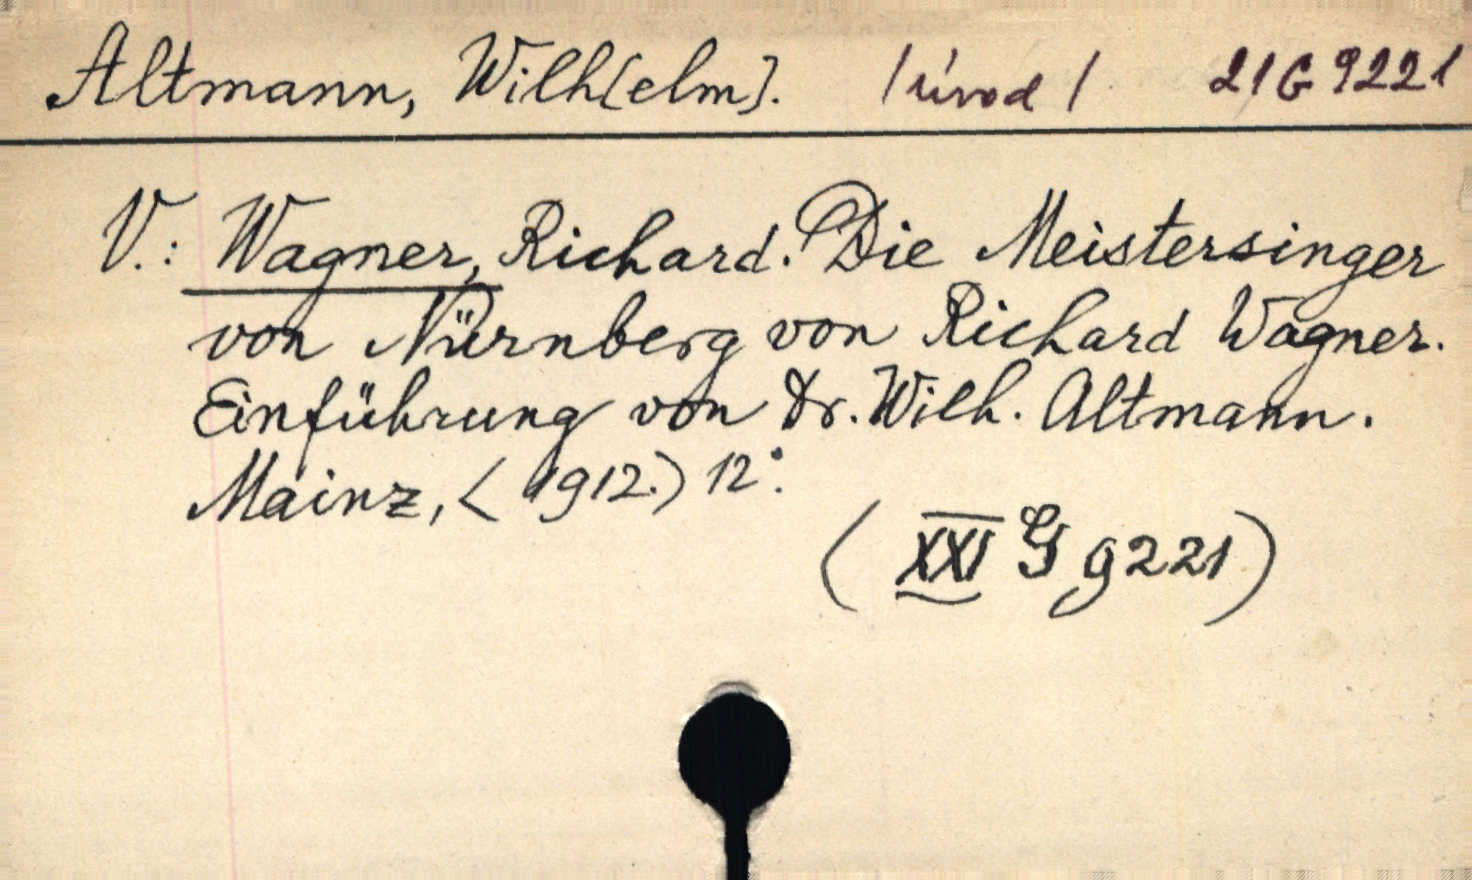 Altmann, Wilh[elm]. /úvod/ 21G9221
V.: Wagner, Richard. Die Meistersinger
von Nürnberg von Richard Wagner.
Einführung von Dr. Wilh. Altmann.
Mainz, <1912.) 12°.
(XXI G 9221)